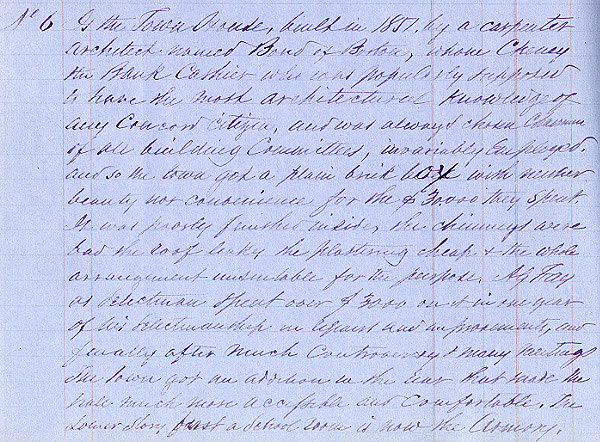 No 6 Is the Town House, built in 1851, by a carpenter
architect named Bond of Boston, whom Cheney
the Bank Cashier who was popularly supposed
to have the most architectural knowledge of
any Concord Citizen, and was always chosen Chairman
of all building Committees, invariably Employed.
and so the town got a plain brick box with neither
beauty nor convenience for the $30000 they spent.
It was poorly finished inside, the chimneys were
bad the roof leaky the plastering cheap & the whole
arrangement unsuitable for the purpose. A G Fay
as Selectman Spent over $3000 on it in one year
of his Selectmanship in repairs and improvements, and
finally after much Controversy & many meetings
the town got an addition in the rear that made the
hall much more accessible and Comfortable. The
Lower Story, a School room is now the Armory.